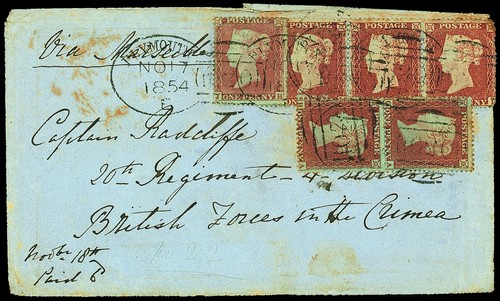 Via Marseilles
PLYMOUTH
NO 17
1854
POSTAGE
POSTAGE
POSTAGE
POSTAGE
ONE PENNY
Captain Radcliffe
20th Regiment - 4 Division
British Forces in the Crimea
Novbr 18th
Paid 6